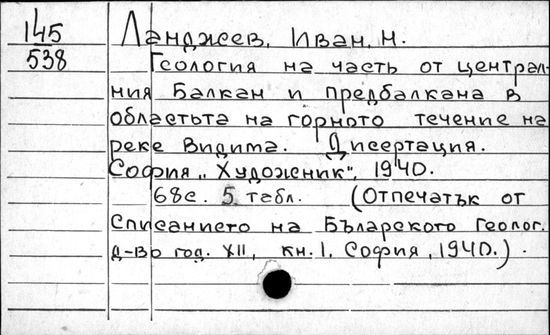 145 Ланджев, Иван. Н.
538 Геология на часть от централ-
ния Балкан и предбалкана в
областьта на горното течение на
реке Видима. Дисертация.
София,, Художник", 1940.
68с. 5 табл. (Отпечатък от
Списанието на Бъларското Геолог.
д-во год. XII, кн. 1, София, 1940.).